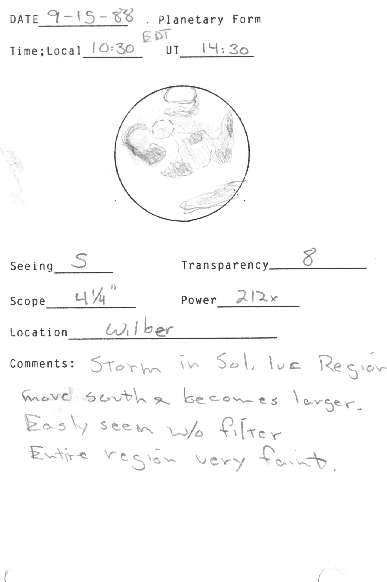 DATE 9-15-88 . Planetary Form
EDT
Time;Local 10:30 UT 14:30
Seeing 5 Transparency 8
Scope 4¼" Power 212x
Location Wilber
Comments: Storm in Sol. luc Region
move south & becomes larger.
Easly seen w/o filter
Entire region very faint.